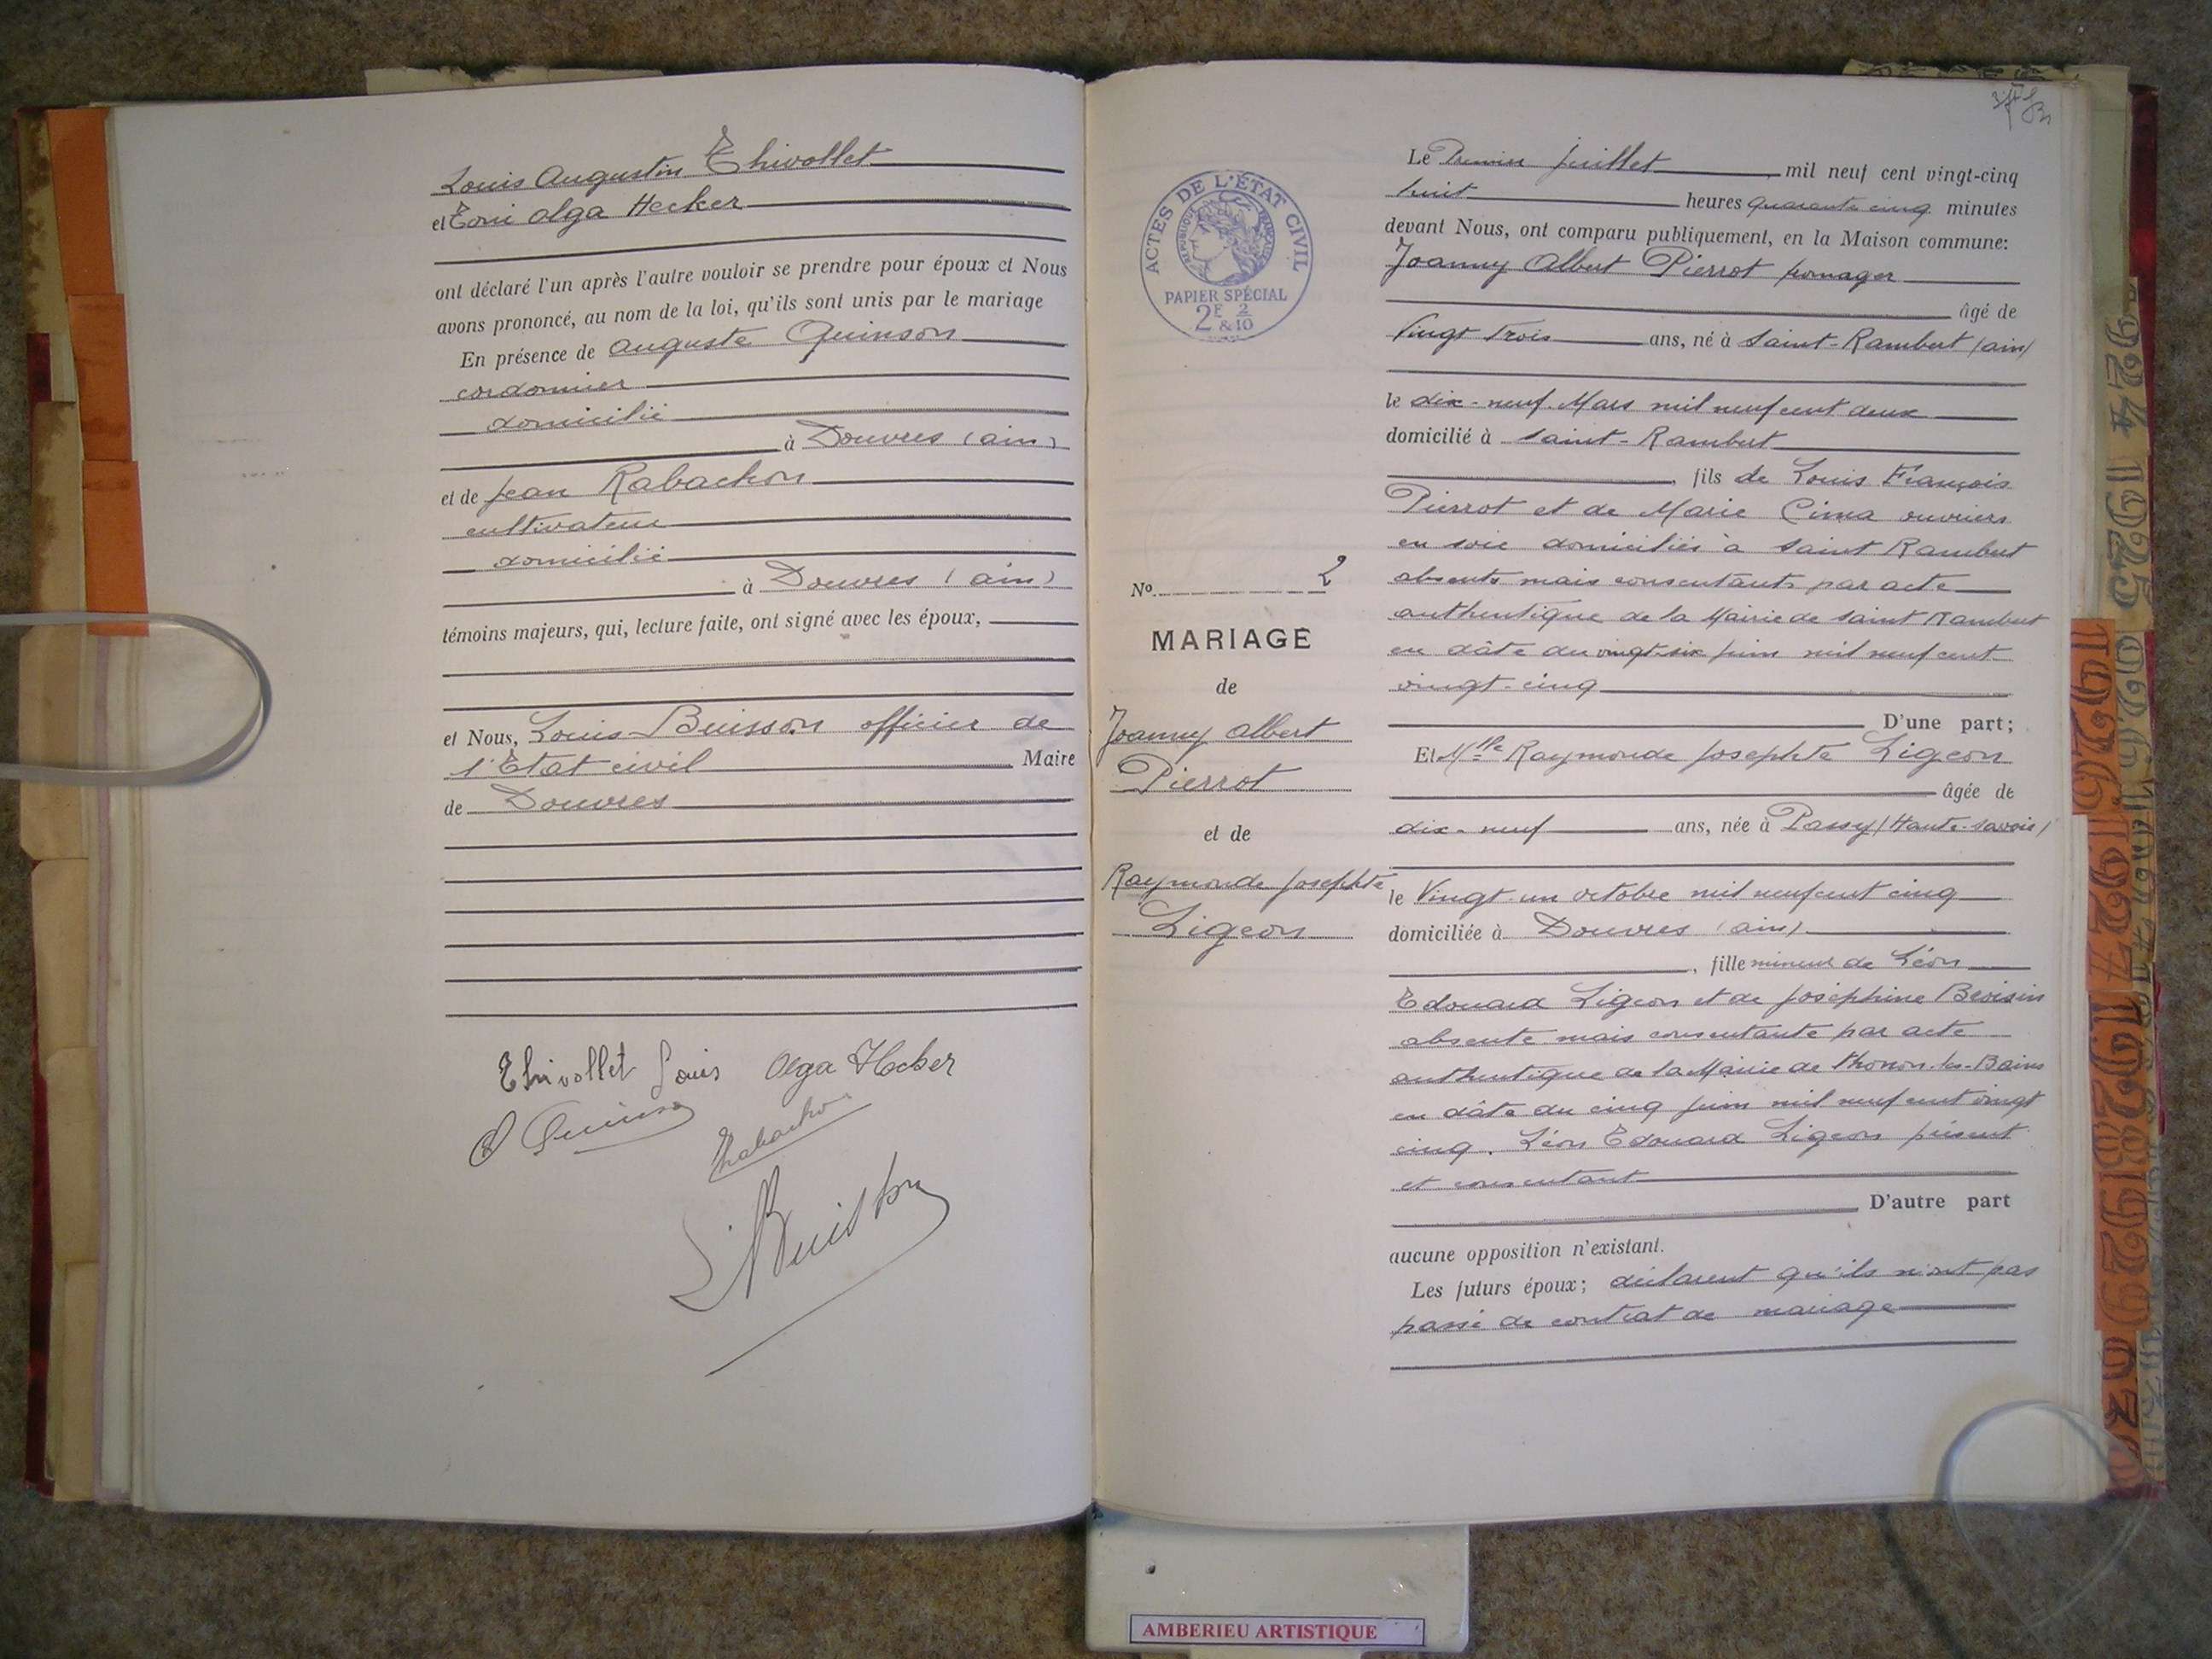 Louis Augustin Thivollet
et Toni Olga Hecker
ont déclaré l'un après l'autre vouloir se prendre pour époux et Nous
avons prononcé, au nom de la loi, qu'ils sont unis par le mariage
En présence de Auguste Quinson
cordonnier
domicilié
à Douvres (ain)
et de Jean Rabachon
cultivateur
domicilié
à Douvres (ain)
témoins majeurs, qui, lecture faite, ont signé avec les époux,
et Nous, Louis Buisson officier de
l'Etat civil Maire
de Douvres
Thivollet Louis Olga Hecker
Quinson
Rabachon
L Buisson
ACTES DE L'ÉTAT CIVIL
RÉPUBLIQUE FRANÇAISE
PAPIER SPÉCIAL
2F 2
&10
No 2
MARIAGE
de
Joanny Albert
Pierrot
et de
Raymonde Josephte
Ligeon
Le Premier Juillet mil neuf cent vingt-cinq
huit heures quarante cinq minutes
devant Nous, ont comparu publiquement, en la Maison commune:
Joanny Albert Pierrot fromager
âgé de
Vingt trois ans, né à Saint-Rambert (ain)
le dix-neuf Mars mil neuf cent deux
domicilié à Saint-Rambert
, fils de Louis François
Pierrot et de Marie Cima ouvriers
en soie domiciliés à Saint Rambert
absents mais consentants par acte
authentique de la Mairie de Saint Rambert
en dâte du vingt-six juin mil neuf cent
vingt-cinq
D'une part;
Et Mlle Raymonde Josephte Ligeon
âgée de
dix-neuf ans, née à Passy (Haute-Savoie)
le Vingt-un octobre mil neuf cent cinq
domiciliée à Douvres (ain)
, fille mineure de Léon
Edouard Ligeon et de Joséphine Broisin
absente mais consentante par acte
authentique de la Mairie de Thonon-les-Bains
en dâte du cinq juin mil neuf cent vingt
cinq. Léon Edouard Ligeon présent
et consentant
D'autre part
aucune opposition n'existant.
Les futurs époux; déclarent qu'ils n'ont pas
passé de contrat de mariage
1924 1925
1926 1927 1928 1929
AMBERIEU ARTISTIQUE